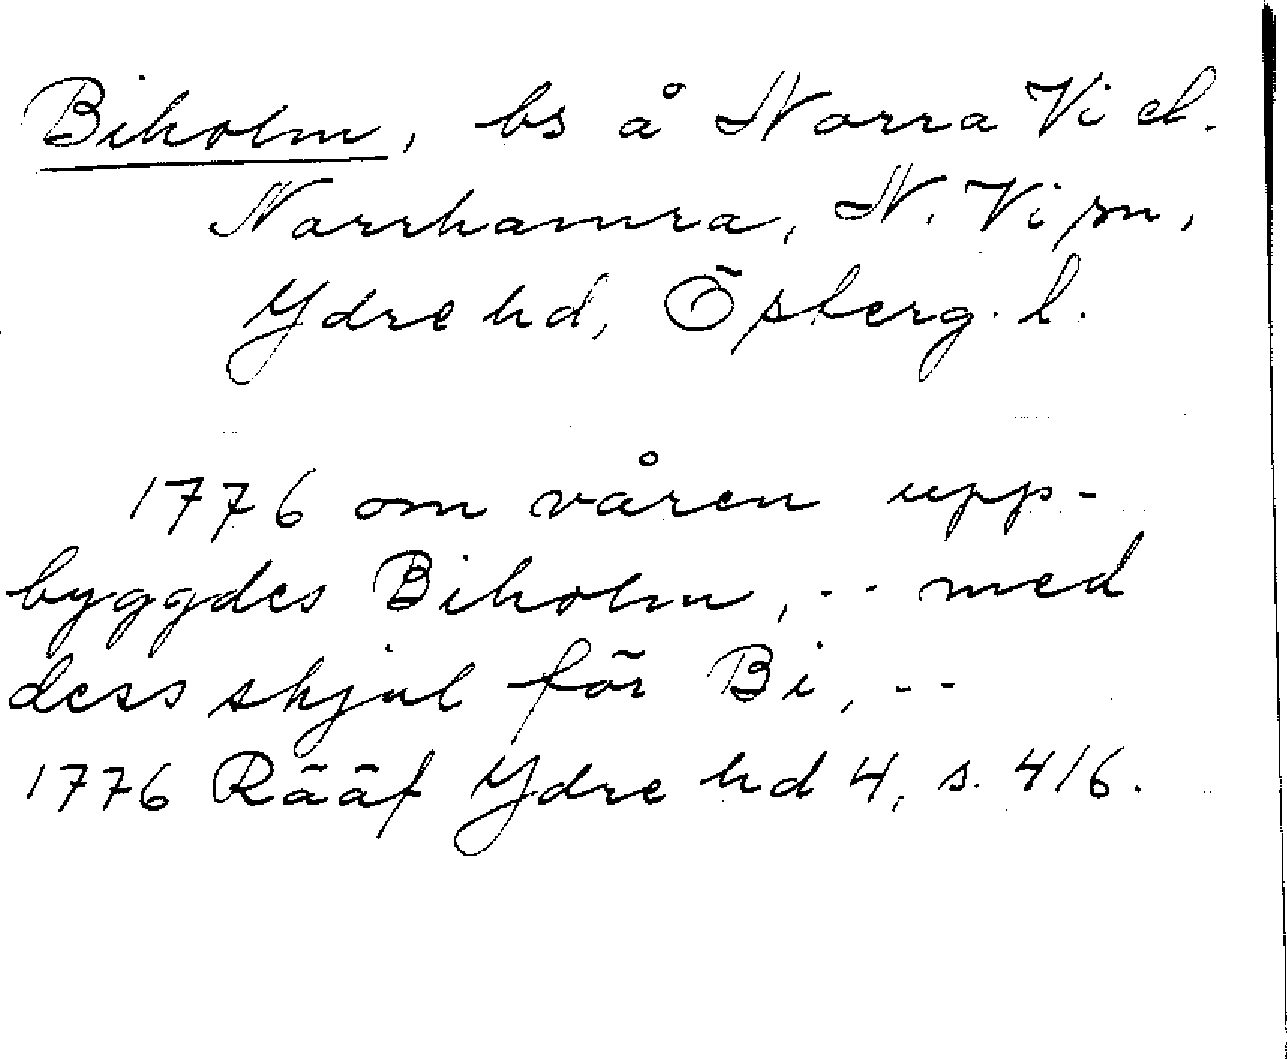 Biholm, bs å Norra Vi el.
Norrhamra, N. Vi sn,
Ydre hd, Österg. l.
1776 om våren upp-
byggdes Biholm, -- med
dess skjul för Bi, --
1776 Rääf Ydre hd 4, s. 416.